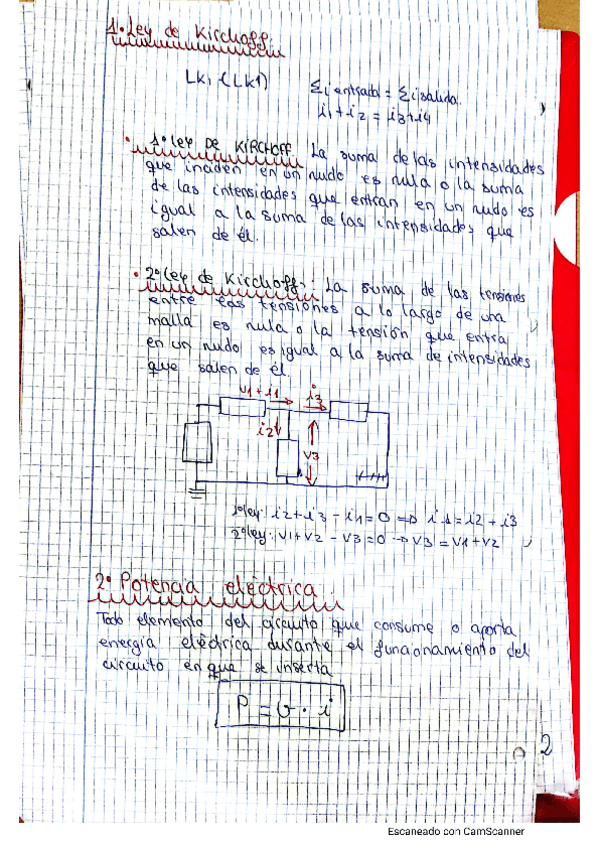 1. Ley de Kirchoff.
LK1 (LK1) Σi entrada = Σi salida.
i1 + i2 = i3 + i4
• 1º Ley DE KIRCHOFF La suma de las intensidades
que inciden en un nudo es nula o la suma
de las intensidades que entran en un nudo es
igual a la suma de las intensidades que
salen de él.
• 2º Ley de Kirchoff: La suma de las tensiones
entre las tensiones a lo largo de una
malla es nula o la tensión que entra
en un nudo es igual a la suma de intensidades
que salen de él.
V1 + i1 i3
i2
V3
1º ley: i2 + i3 - i1 = 0 => i1 = i2 + i3
2º ley: V1 + V2 - V3 = 0 -> V3 = V1 + V2
2º Potencia eléctrica
Todo elemento del circuito que consume o aporta
energía eléctrica durante el funcionamiento del
circuito en que se inserta
P = U · i
2
Escaneado con CamScanner